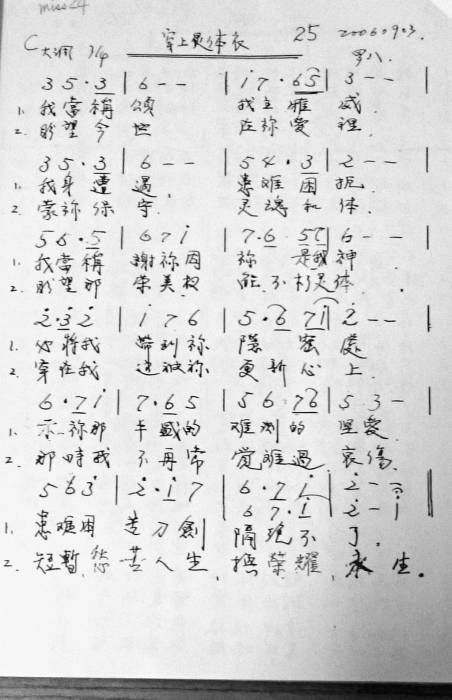 miss24
穿上灵体衣 25 20060903.
C大调 3/4 男八.
3 5 · 3 | 6 - - | i 7 · 6 5 | 3 - - |
1. 我當稱 頌 我主 威
2. 盼望今世 在祢愛 裡
3 5 · 3 | 6 - - | 5 4 · 3 | 2 - - |
1. 我身遭 遇 患难困 扼
2. 蒙祢保 守 灵魂和 体
5 6 · 5 | 6 7 i | 7 · 6 5 | 6 - - |
1. 我當稱 謝祢因 祢 是我 神
2. 盼望那 榮美 能 不朽灵体
2 · 3 2 | 1 7 6 | 5 · 6 7 i | 2 - - |
1. 必將我 帶到祢 隱密處
2. 穿在我 這被祢 更新心 上
6 · 7 i | 7 · 6 5 | 5 6 7 6 | 5 3 - |
1. 祢那 丰盛的 难測的 愛
2. 那時我 不再常 覺难過 哀傷
5 6 3 | 2 · i 7 | 6 · 7 i | 2 - -
6 · 7 i | 2 - i
1. 患难困 刀劍 隔 不 了.
2. 短暫 苦人生, 換榮耀, 永生。